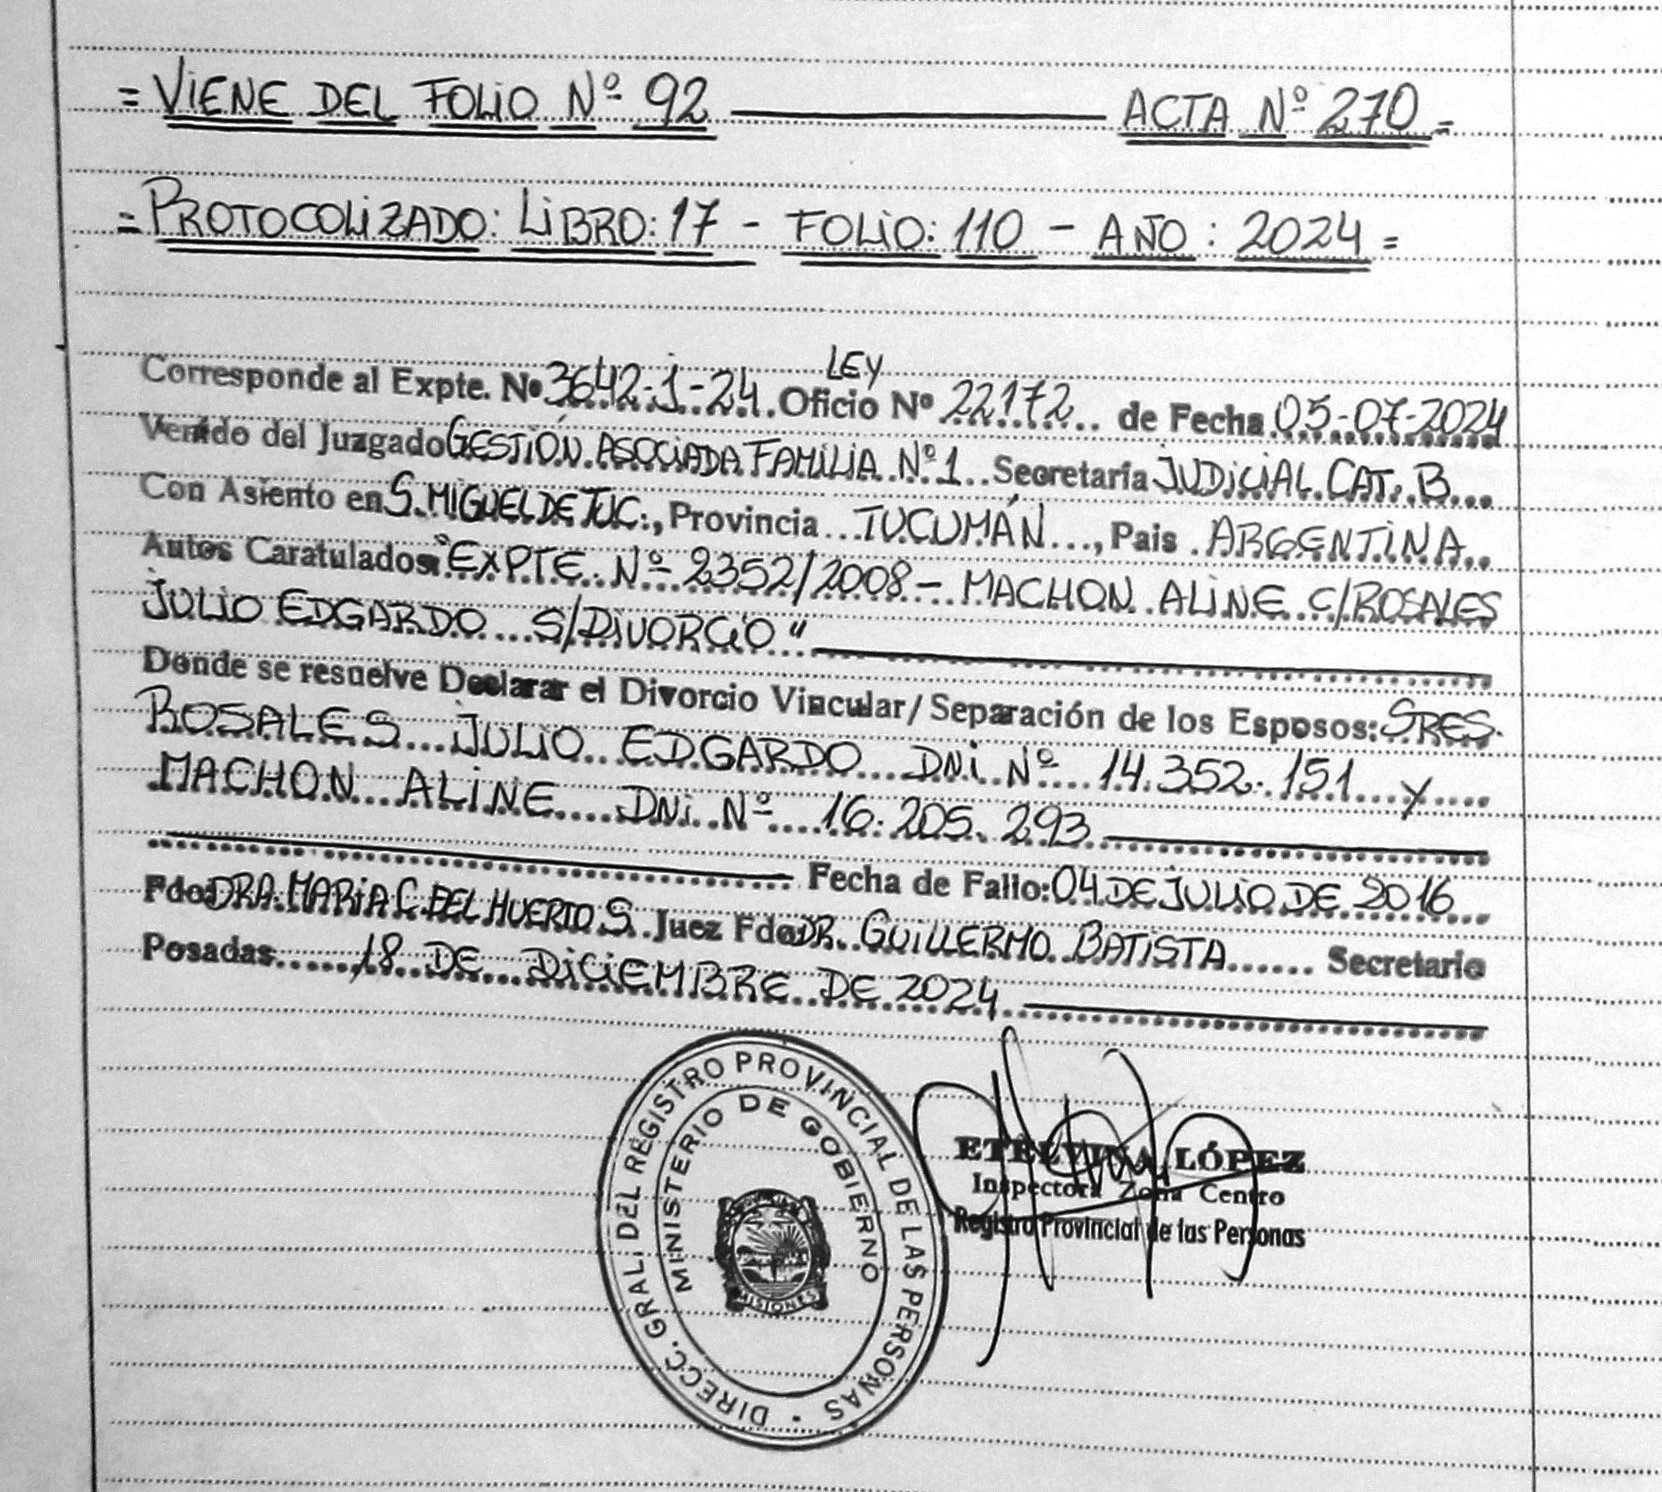 = VIENE DEL FOLIO Nº 92 ———— ACTA Nº 270 =
= PROTOCOLIZADO: LIBRO: 17 - FOLIO: 110 - AÑO: 2024 =
LEY
Corresponde al Expte. Nº 3642-J-24. Oficio Nº 22172 de Fecha 05-07-2024
Venido del Juzgado GESTIÓN ASOCIADA FAMILIA Nº 1 Secretaría JUDICIAL CAT. B
Con Asiento en S. MIGUEL DE TUC., Provincia TUCUMÁN, Pais ARGENTINA
Autos Caratulados: "EXPTE. Nº 2352/2008 - MACHON ALINE C/ROSALES
JULIO EDGARDO S/DIVORCIO"
Donde se resuelve Declarar el Divorcio Vincular/ Separación de los Esposos: SRES.
ROSALES JULIO EDGARDO DNI Nº 14.352.151 Y
MACHON ALINE DNI Nº 16.205.293
Fecha de Fallo: 04 DE JULIO DE 2016
Fdo DRA. MARIA C. DEL HUERTO S. Juez Fdo DR. GUILLERMO BATISTA Secretario
Posadas 18 DE DICIEMBRE DE 2024
DIRECC. GRAL. DEL REGISTRO PROVINCIAL DE LAS PERSONAS
MINISTERIO DE GOBIERNO
MISIONES
ETELVINA LÓPEZ
Inspectora Zona Centro
Registro Provincial de las Personas